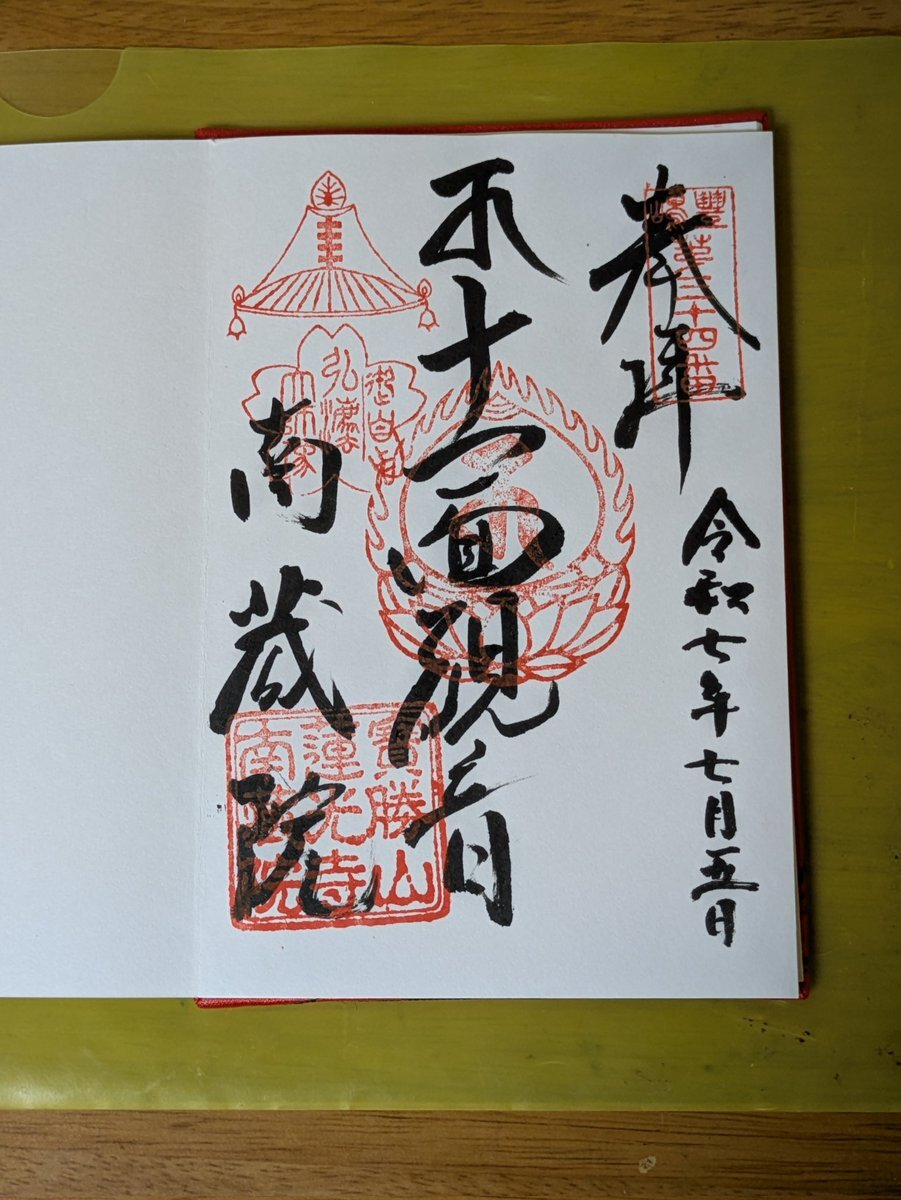 奉拝
豐嶋第三十四番
令和七年七月五日
十一面観音
弘法
南蔵院
寶勝山
蓮光寺
南蔵院